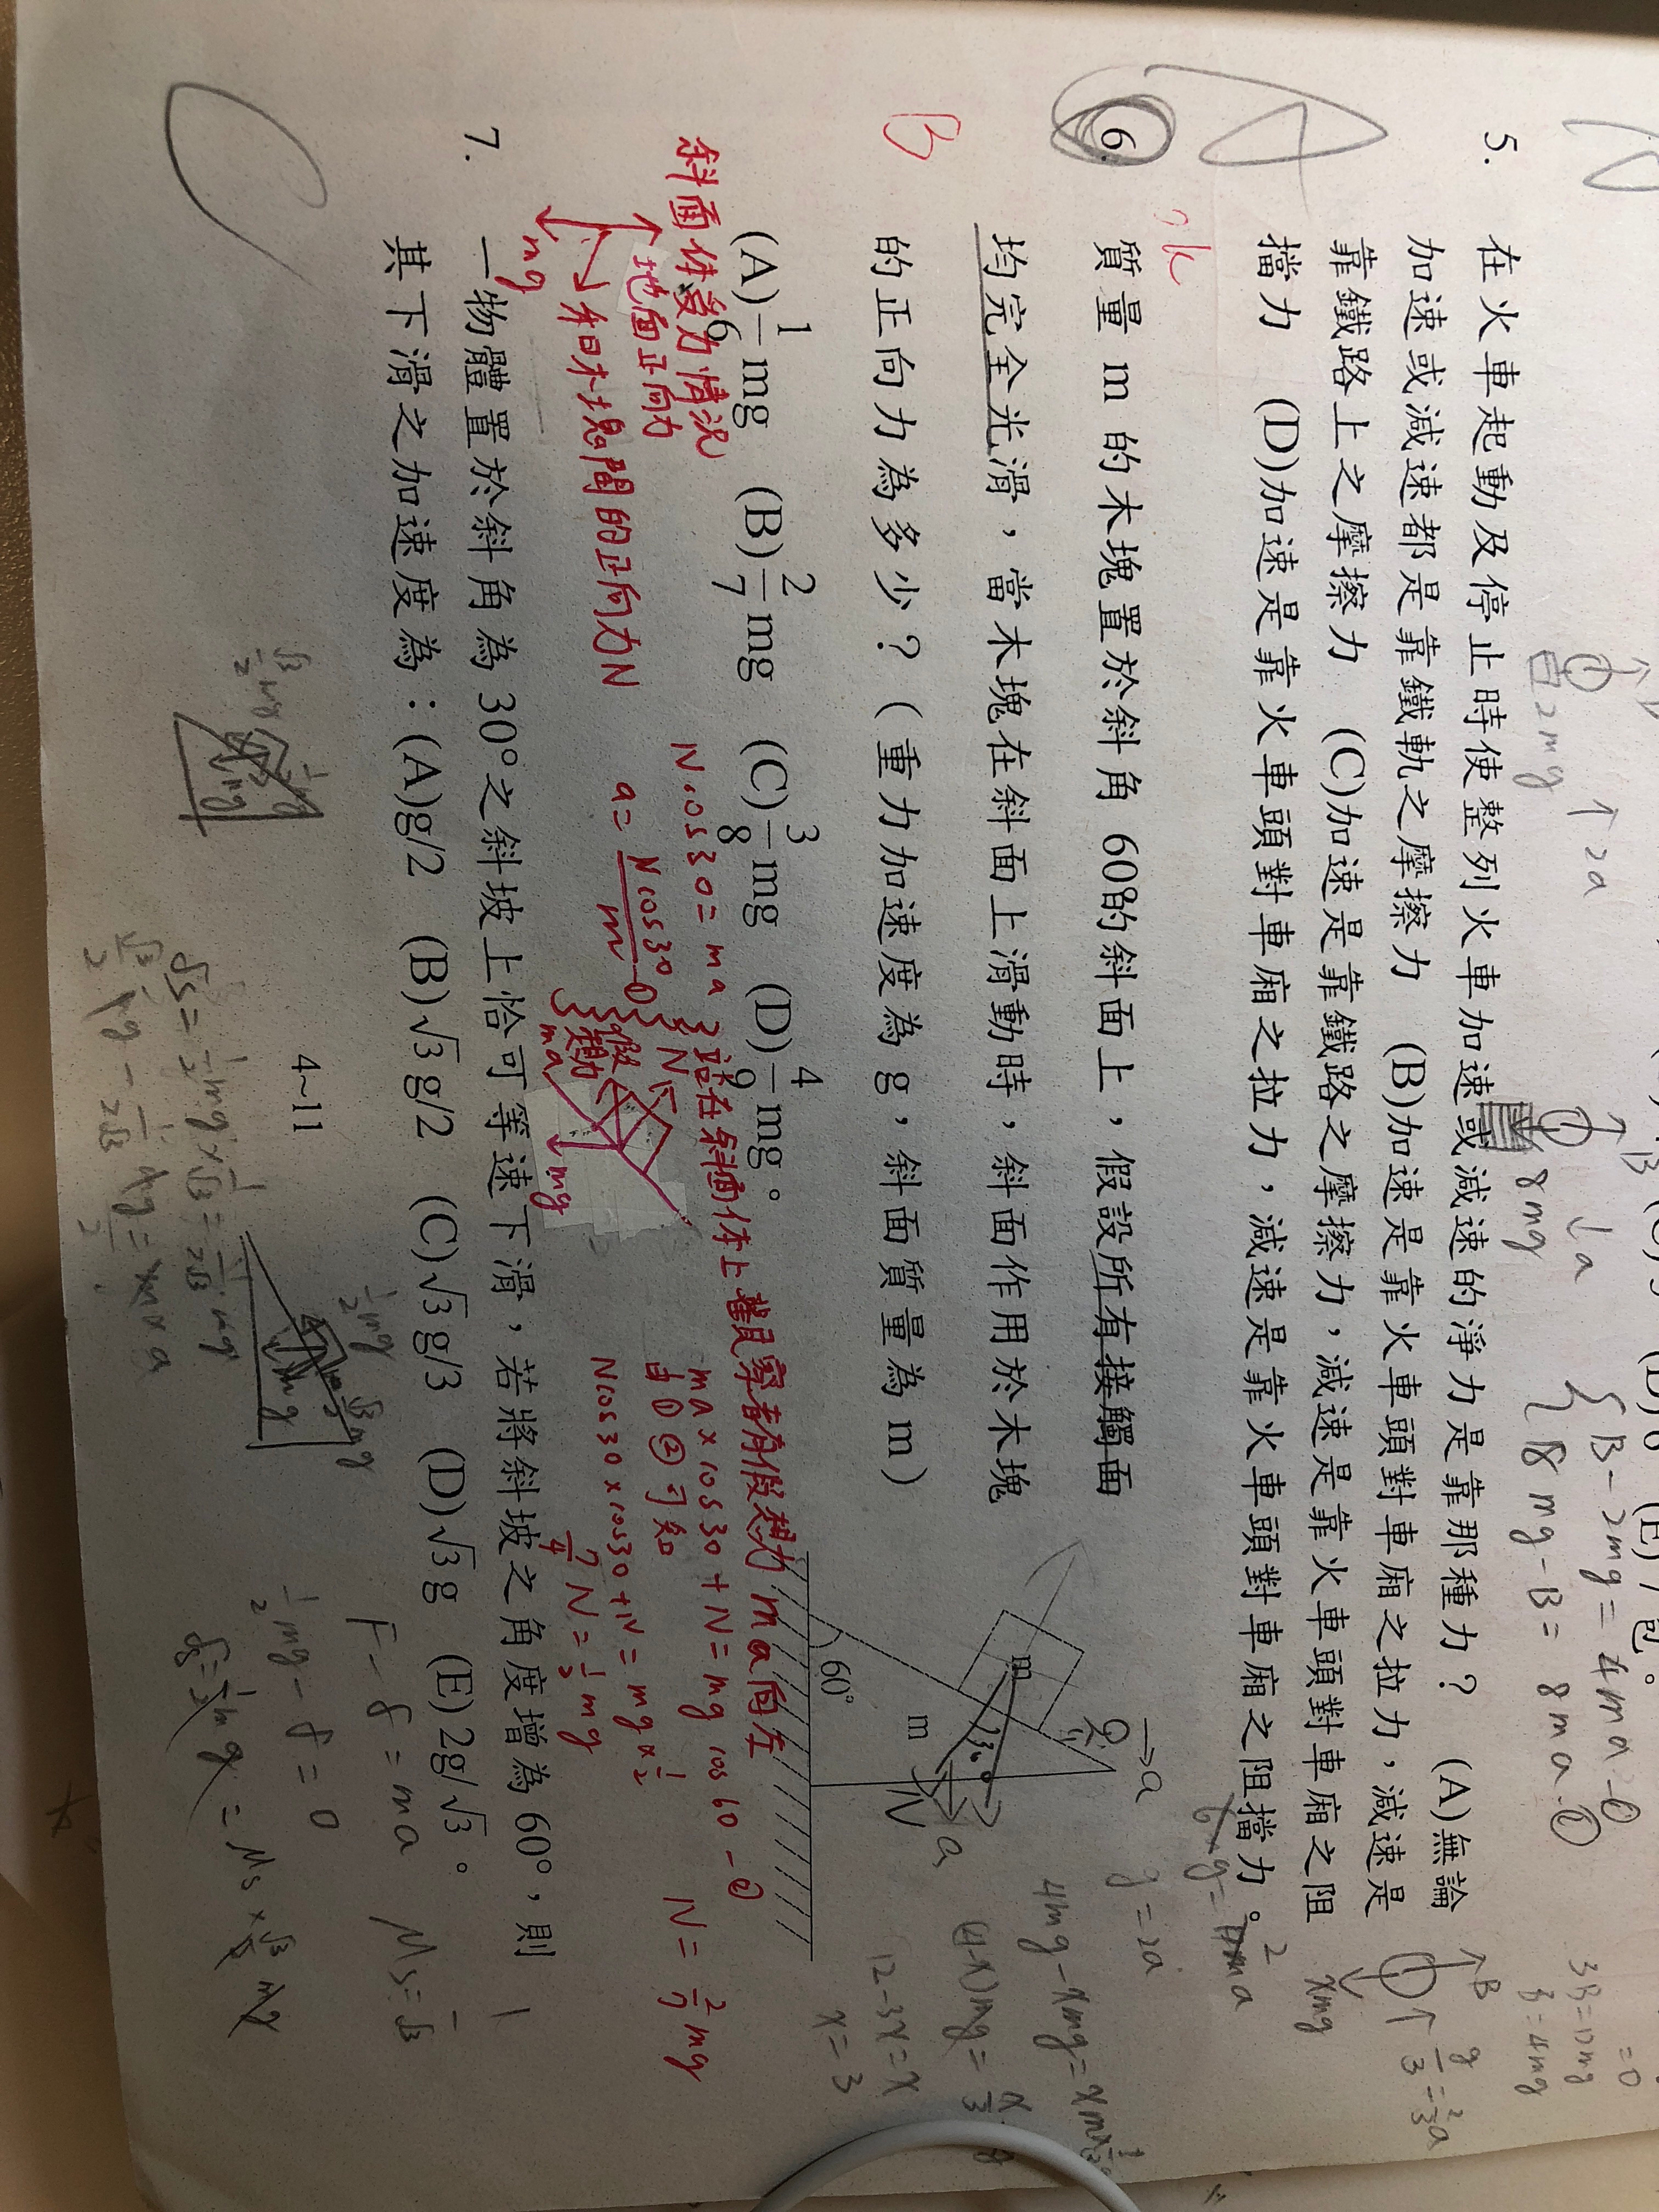 5. 在火車起動及停止時使整列火車加速或減速的淨力是靠那種力? (A)無論
加速或減速都是靠鐵軌之摩擦力 (B)加速是靠火車頭對車廂之拉力,減速是
靠鐵路上之摩擦力 (C)加速是靠鐵路之摩擦力,減速是靠火車頭對車廂之阻
擋力 (D)加速是靠火車頭對車廂之拉力,減速是靠火車頭對車廂之阻擋力。
6. 質量 m 的木塊置於斜角 60°的斜面上,假設所有接觸面
均完全光滑,當木塊在斜面上滑動時,斜面作用於木塊
的正向力為多少?(重力加速度為 g,斜面質量為 m)
(A)1/6 mg (B)2/7 mg (C)3/8 mg (D)4/9 mg。
m
60°
m
a
N
30°
→a
B
ok
斜面体受力情況
地面正向力
和木塊間的正向力N
mg
Ncos30=ma
a=Ncos30/m -①
站在斜面体上觀察者有假想力ma向左
假想力
ma
N
mg
ma×cos30+N=mg cos60 -②
由①②可知
Ncos30×cos30+N=mg×1/2
7/4 N=1/2 mg
N=2/7 mg
7. 一物體置於斜角為 30°之斜坡上恰可等速下滑,若將斜坡之角度增為 60°,則
其下滑之加速度為:(A)g/2 (B)√3 g/2 (C)√3 g/3 (D)√3 g (E)2g/√3。
↑2a
2mg
↑B
8mg
↓a
B-2mg=4ma-①
8mg-B=8ma-②
3B=12mg
B=4mg
↑B
xmg
g=2a
4mg-xmg=
12-3x=x
x=3
F-f=ma
1/2 mg-f=0
f=1/2 mg
4~11